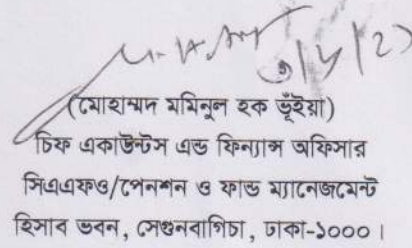 (মোহাম্মদ মমিনুল হক ভূঁইয়া)
চিফ একাউন্টস এন্ড ফিন্যান্স অফিসার
সিএএফও/পেনশন ও ফান্ড ম্যানেজমেন্ট
হিসাব ভবন, সেগুনবাগিচা, ঢাকা-১০০০।